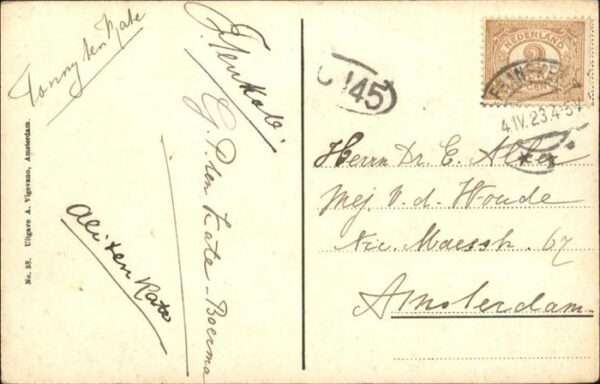 Tonny ten Kate
J. tenKate
G. P. ten Kate-Boerma
Ali ten Kate
No. 38. Uitgave A. Vigevano, Amsterdam.
NEDERLAND
2
4 IV. 23. 4-5V
45
Herrn Dr. C. Alker
Mej. v. d. Woude
Nic. Maesstr. 67
Amsterdam